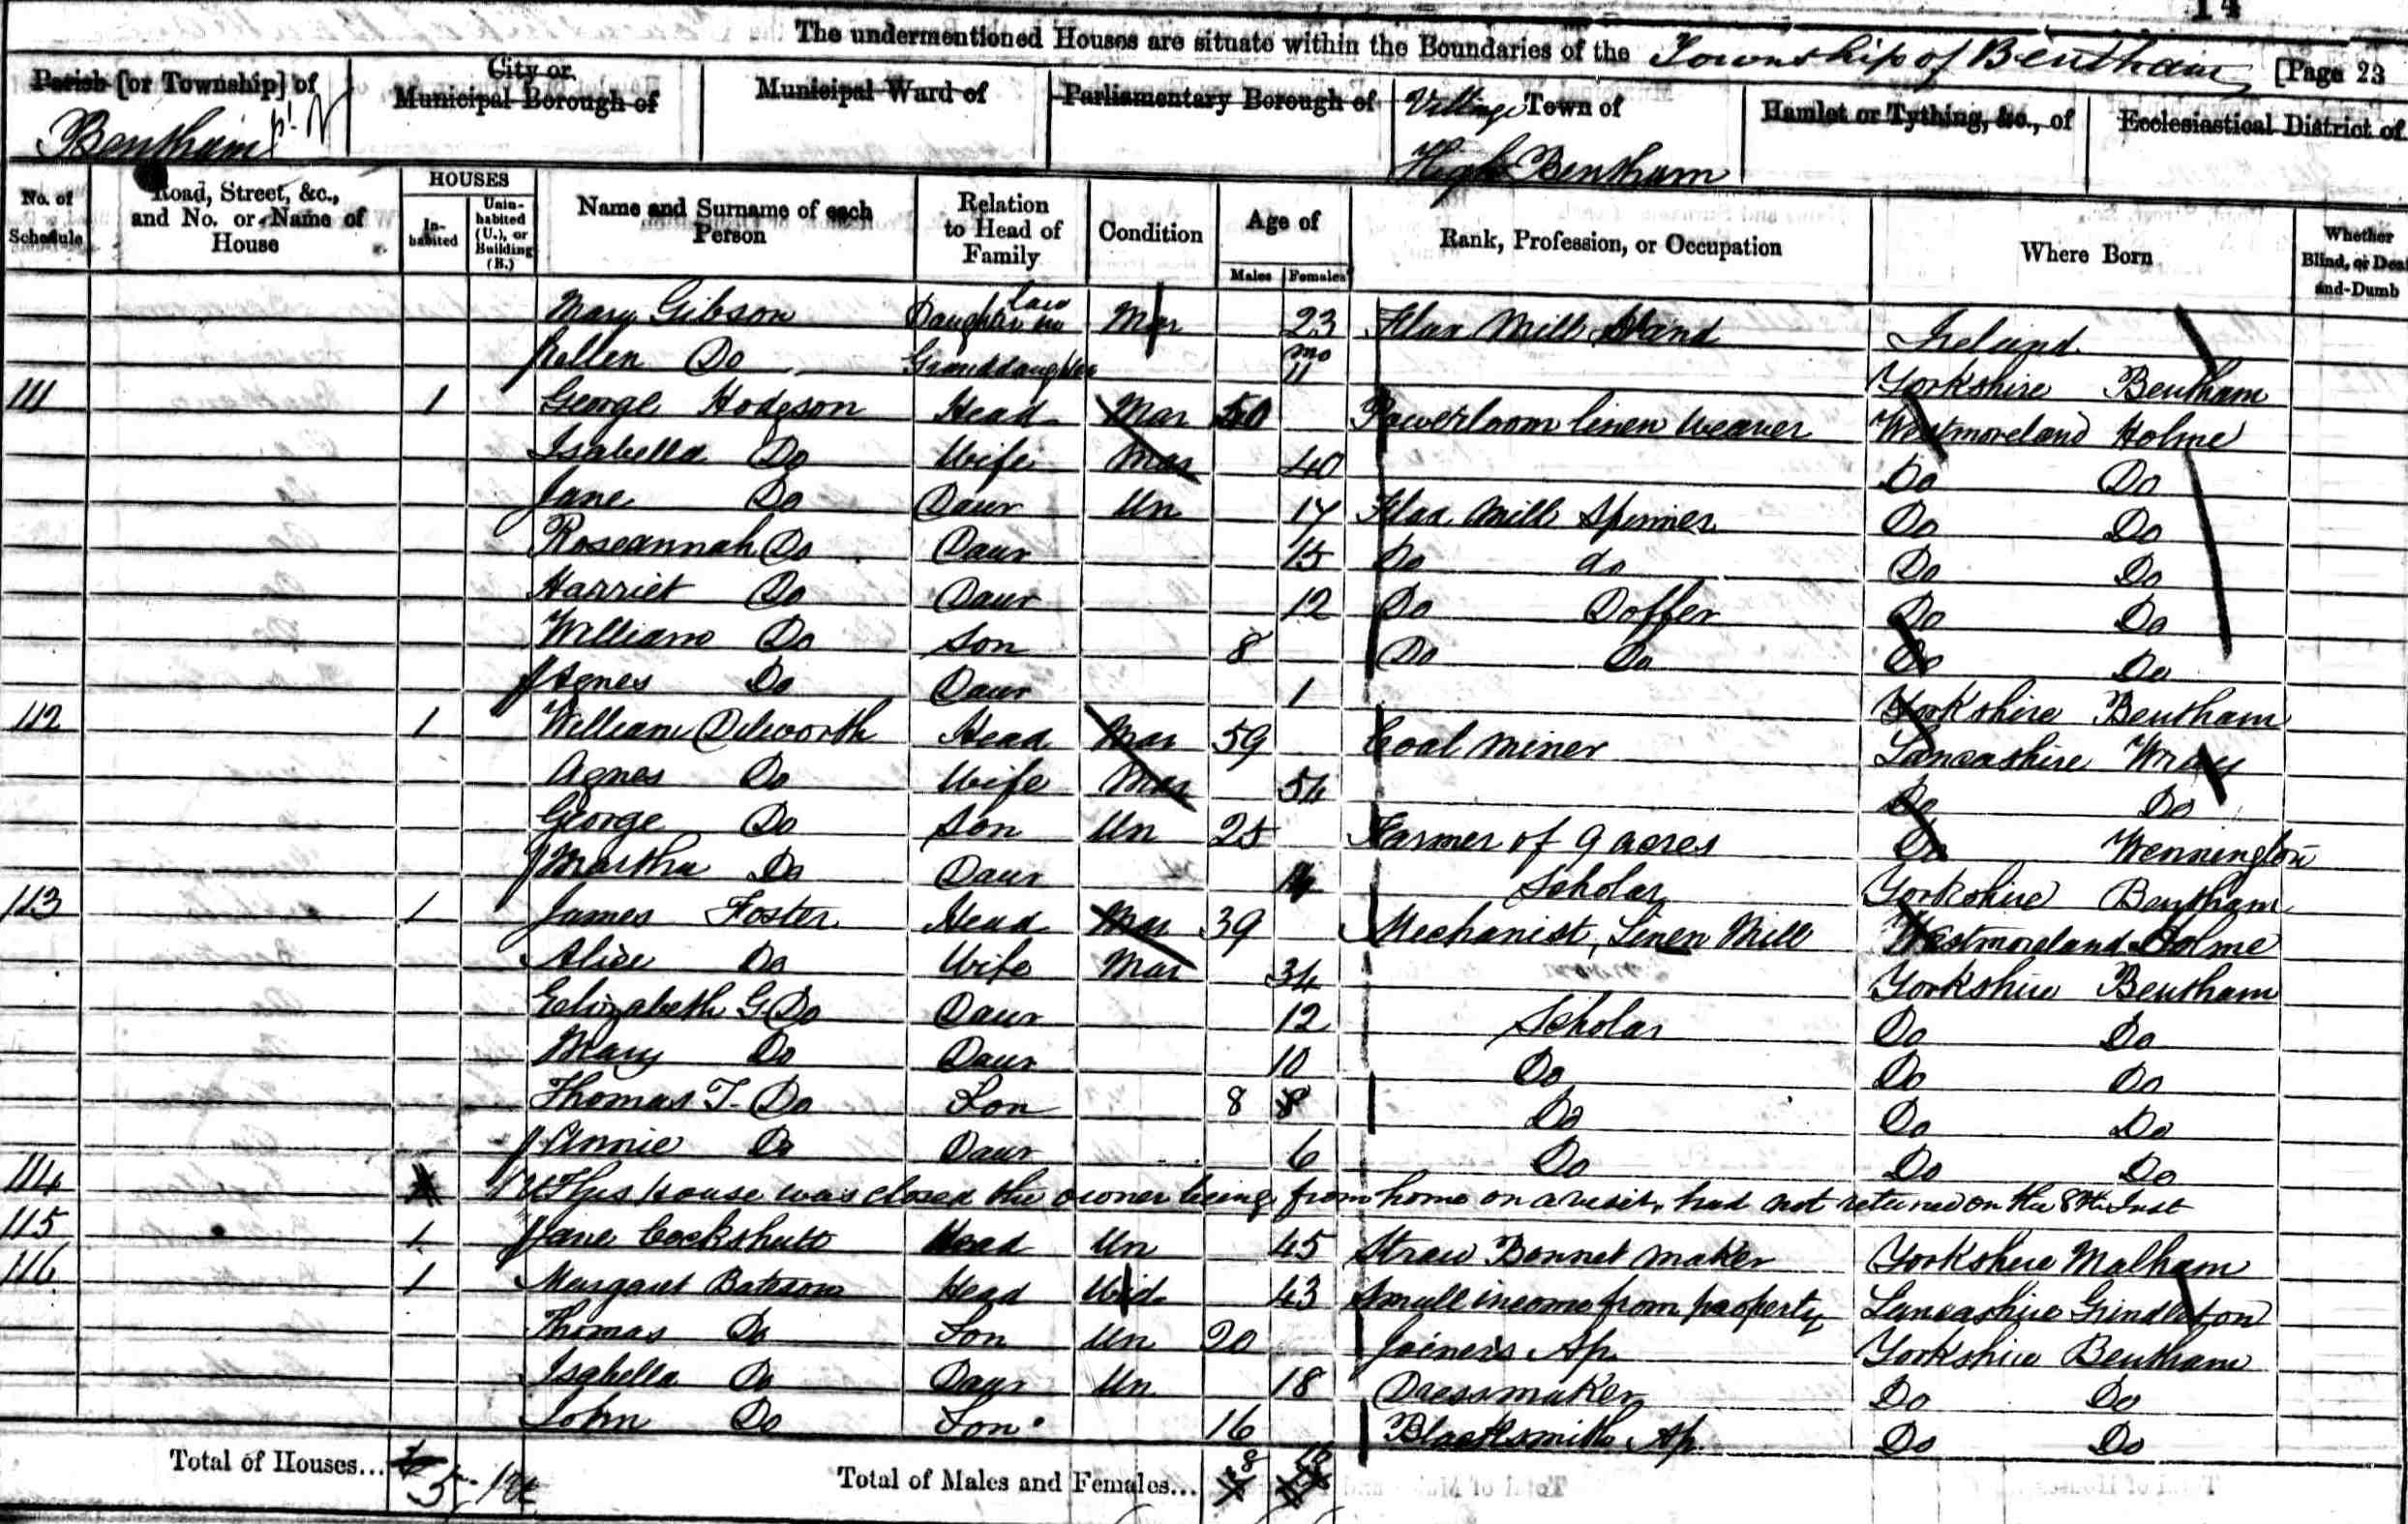 14
The undermentioned Houses are situate within the Boundaries of the Township of Bentham [Page 23
Parish [or Township] of Bentham pt
City or Municipal Borough of
Municipal Ward of
Parliamentary Borough of
Village Town of High Bentham
Hamlet or Tything, &c., of
Ecclesiastical District of
No. of Schedule
Road, Street, &c., and No. or Name of House
HOUSES
In-habited
Unin-habited (U.), or Building (B.)
Name and Surname of each Person
Relation to Head of Family
Condition
Age of
Males Females
Rank, Profession, or Occupation
Where Born
Whether Blind, or Deaf-and-Dumb
Mary Gibson Daughter in law Mar 23 Flax Mill Hand Ireland
Do Granddaughter 11 mo Yorkshire Bentham
111 1 George Hodgson Head Mar 50 Powerloom linen Weaver Westmoreland Holme
Isabella Do Wife Mar 40 Do Do
Jane Do Daur Un 17 Flax Mill Spinner Do Do
Roseannah Do Daur 15 Do do Do Do
Harriet Do Daur 12 Do Doffer Do Do
William Do Son 8 Do Do Do Do
Agnes Do Daur 1 Yorkshire Bentham
112 1 William Dilworth Head Mar 59 Coal Miner Lancashire Wray
Agnes Do Wife Mar 54 Do Do
George Do Son Un 25 Farmer of 9 acres Do Wennington
Martha Do Daur Scholar Yorkshire Bentham
113 1 James Foster Head Mar 39 Mechanist, Linen Mill Westmoreland Holme
Alice Do Wife Mar 34 Yorkshire Bentham
Elizabeth G Do Daur 12 Scholar Do Do
Mary Do Daur 10 Do Do Do
Thomas T. Do Son 8 8 Do Do Do
Annie Do Daur 6 Do Do Do
114 This house was closed the owner being from home on a visit, had not returned on the 8th Inst
115 1 Jane Cockshutt Head Un 45 Straw Bonnet Maker Yorkshire Malham
116 1 Margaret Bateson Head Wid 43 Small income from property Lancashire Grindleton
Thomas Do Son Un 20 Joiners Ap. Yorkshire Bentham
Isabella Do Daur Un 18 Dressmaker Do Do
John Do Son 16 Blacksmiths Ap. Do Do
Total of Houses... 5
Total of Males and Females... 8